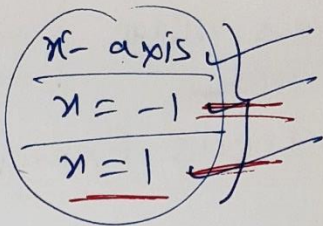 x - axis
x = -1
x = 1